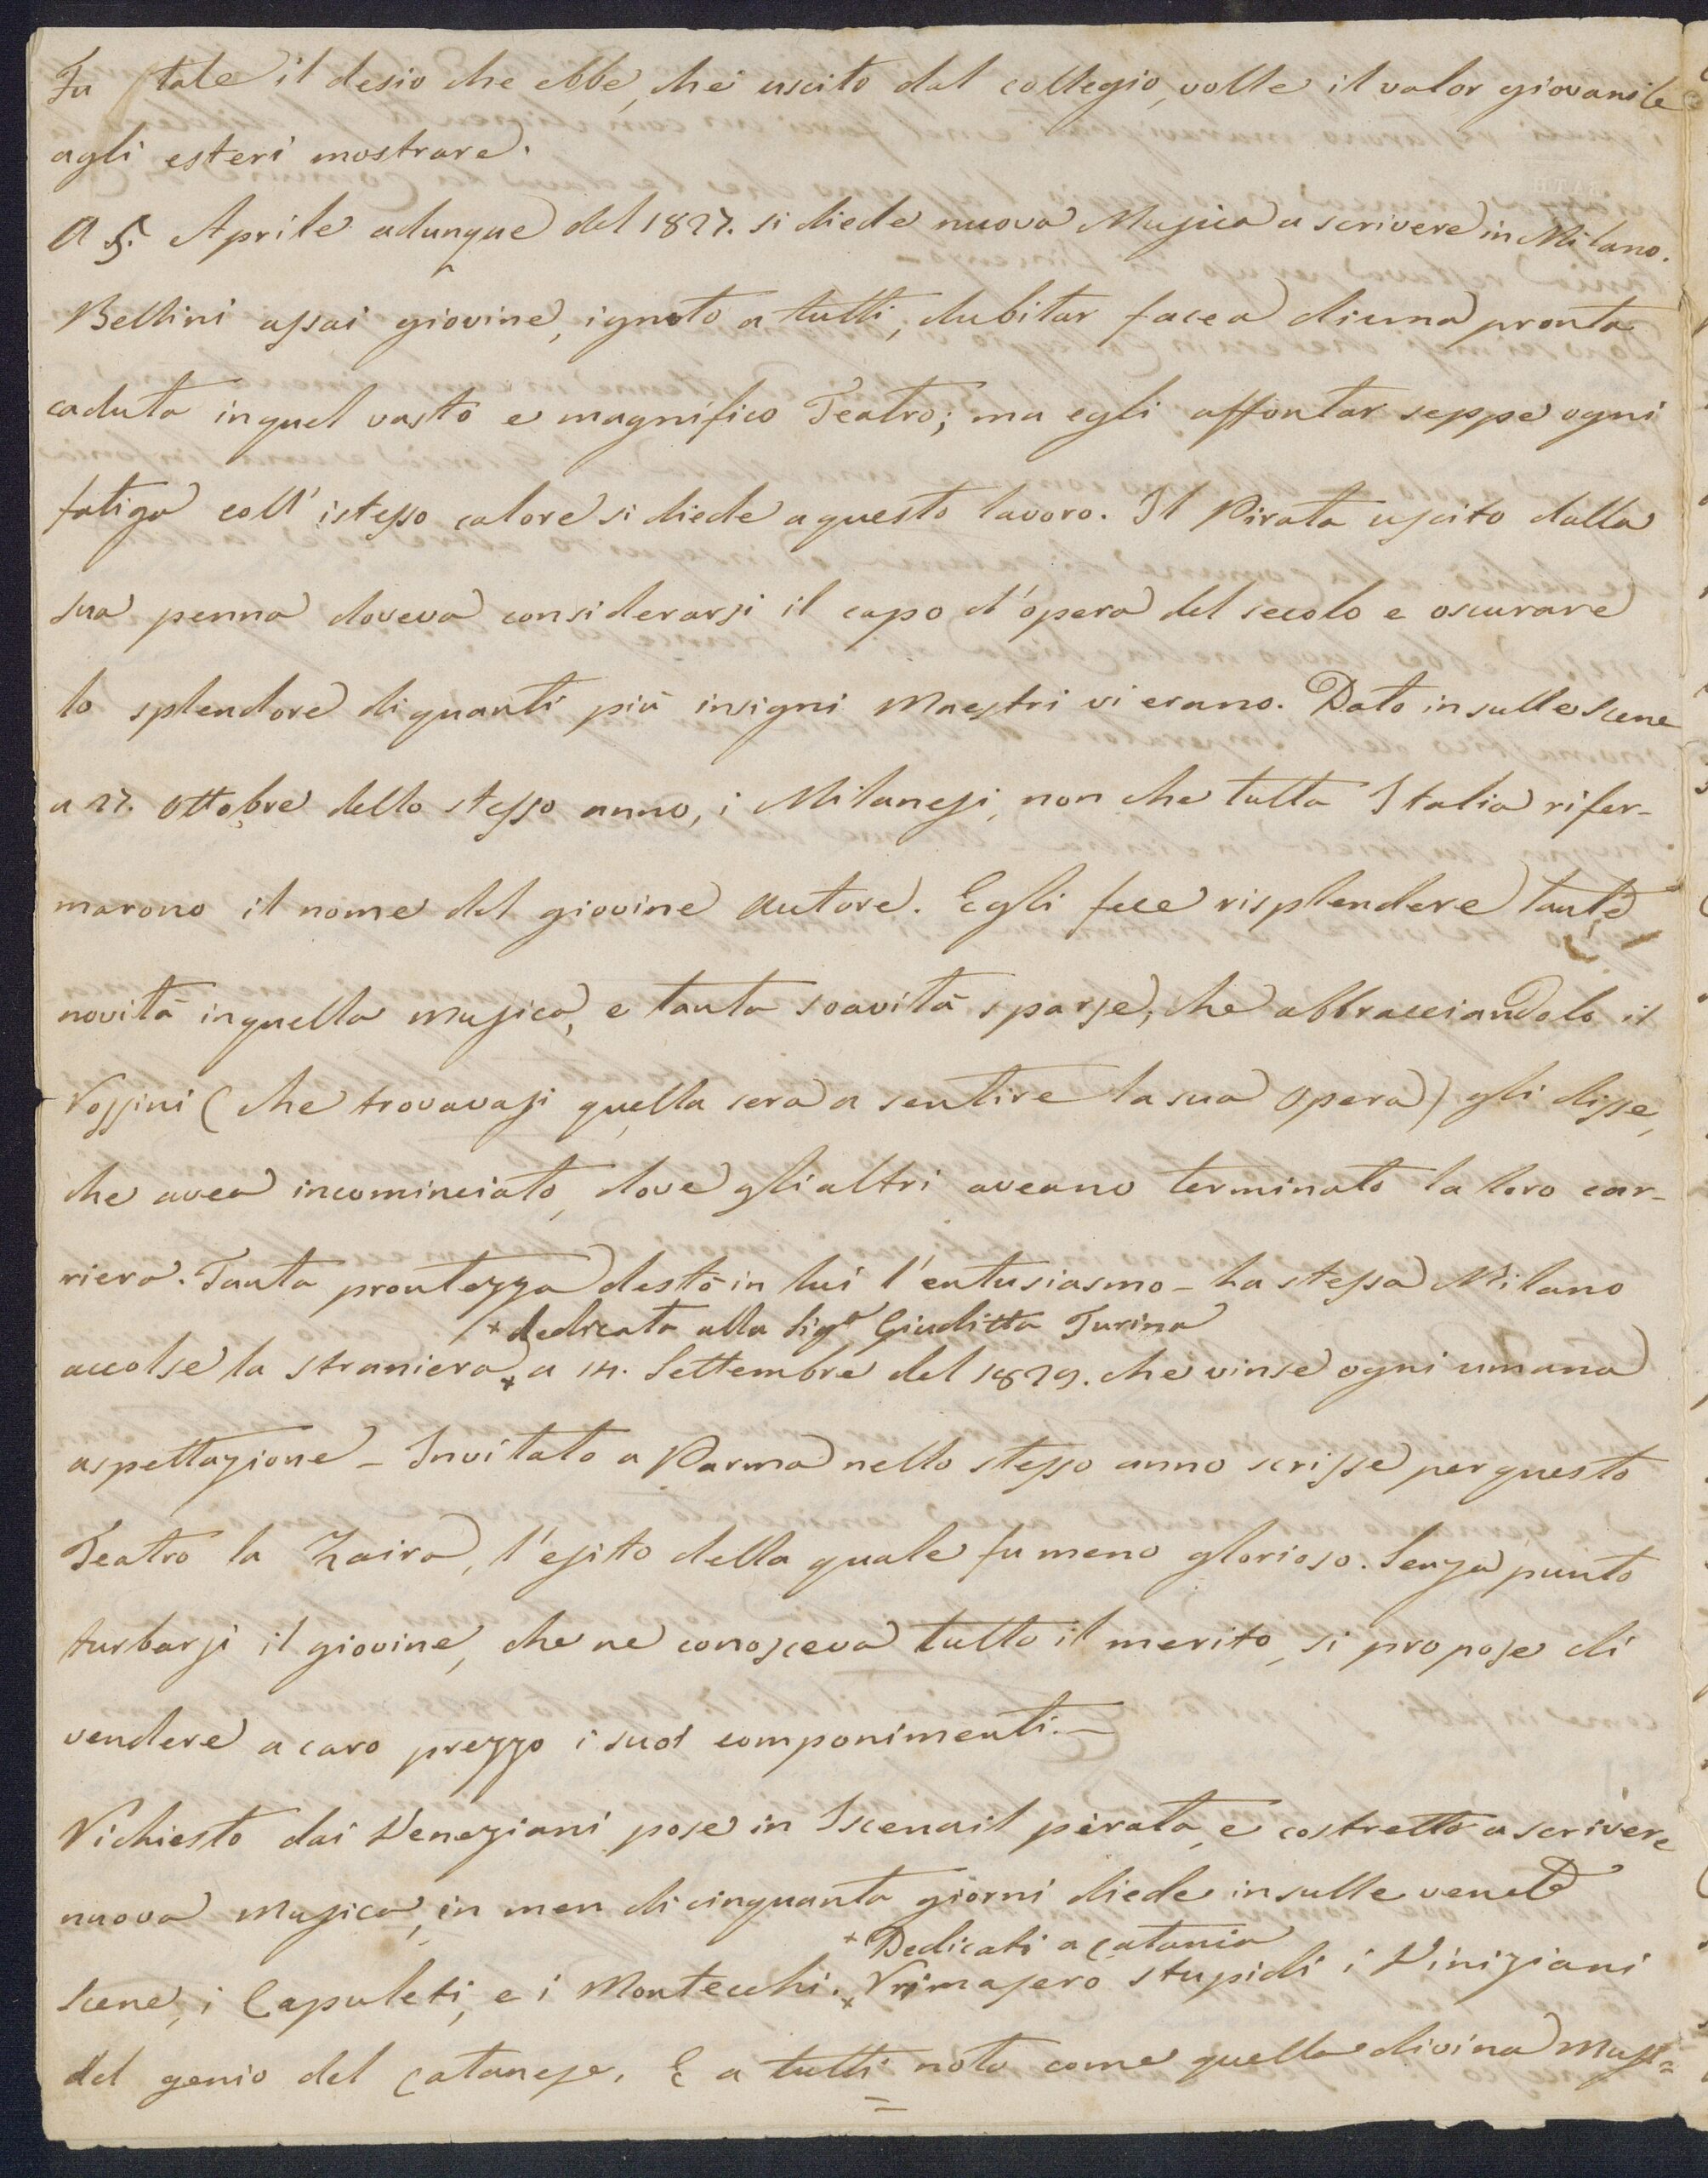 Fu tale il desio che ebbe, che uscito dal collegio, volle il valor giovanile
agli esteri mostrare.
A 5. Aprile adunque del 1827. si diede nuova Musica a scrivere in Milano.
Bellini assai giovine, ignoto a tutti, dubitar facea di una pronta
caduta in quel vasto e magnifico Teatro; ma egli affontar seppe ogni
fatiga coll' istesso calore si diede a questo lavoro. Il Pirata uscito dalla
sua penna doveva considerarsi il capo d'opera del secolo e oscurare
lo splendore di quanti più insigni Maestri vi erano. Dato in sulle Scene
a 27. Ottobre dello stesso anno, i Milanesi, non che tutta Italia rifer-
marono il nome del giovine Autore. Egli fece risplendere tante
novità in quella musica, e tanta soavità sparse, che abbracciandolo il
Rossini (che trovavasi quella sera a sentire la sua Opera) gli disse,
che avea incominciato, dove gli altri aveano terminato la loro car-
riera. Tanta prontezza destò in lui l'entusiasmo - La stessa Milano
+ dedicata alla Sigra Giuditta Turina
accolse la straniera + a 14. Settembre del 1829. che vinse ogni umana
aspettazione - Invitato a Parma nello stesso anno scrisse per questo
Teatro la Zaira, l'esito della quale fu meno glorioso. Senza punto
turbarsi il giovine, che ne conosceva tutto il merito, si propose di
vendere a caro prezzo i suoi componimenti. -
Richiesto dai Veneziani pose in Iscena il pirata, e costretto a scrivere
nuova musica, in men di cinquanta giorni diede in sulle venete
+ Dedicati a Catania
Scene, i Capuleti, e i Montecchi. + Rrimasero stupidi i Viniziani
del genio del Catanese. E a tutti noto come quella divina Musi=